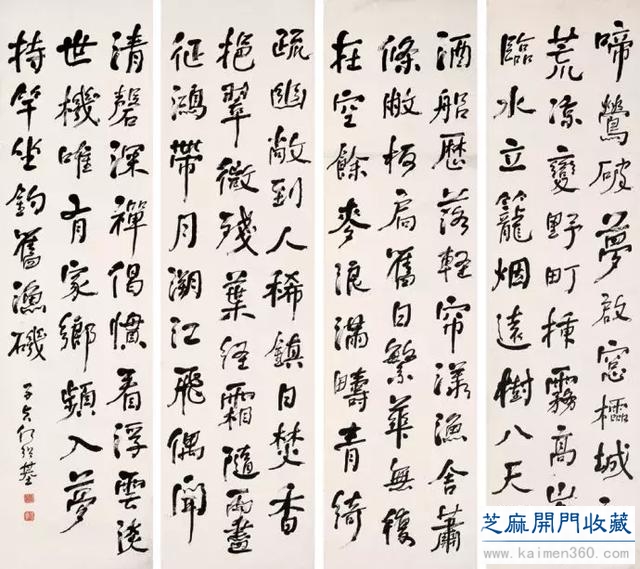 啼鶯破夢啟窓櫺城
荒涼變野町棟霧高
臨水立籠烟遠樹入天
酒船歷落輕帘漾漁舍蕭
條敝板扃舊日繁華無復
在空餘麥浪滿疇青綺
疏幽敞到人稀鎮日焚香
挹翠微殘葉經霜隨雨盡
征鴻帶月溯江飛偶聞
清磬深禪偈慣看浮雲淡
世機唯有家鄉頻入夢
持竿坐釣舊漁磯
子貞何紹基
芝麻開門收藏
www.kaimen360.com